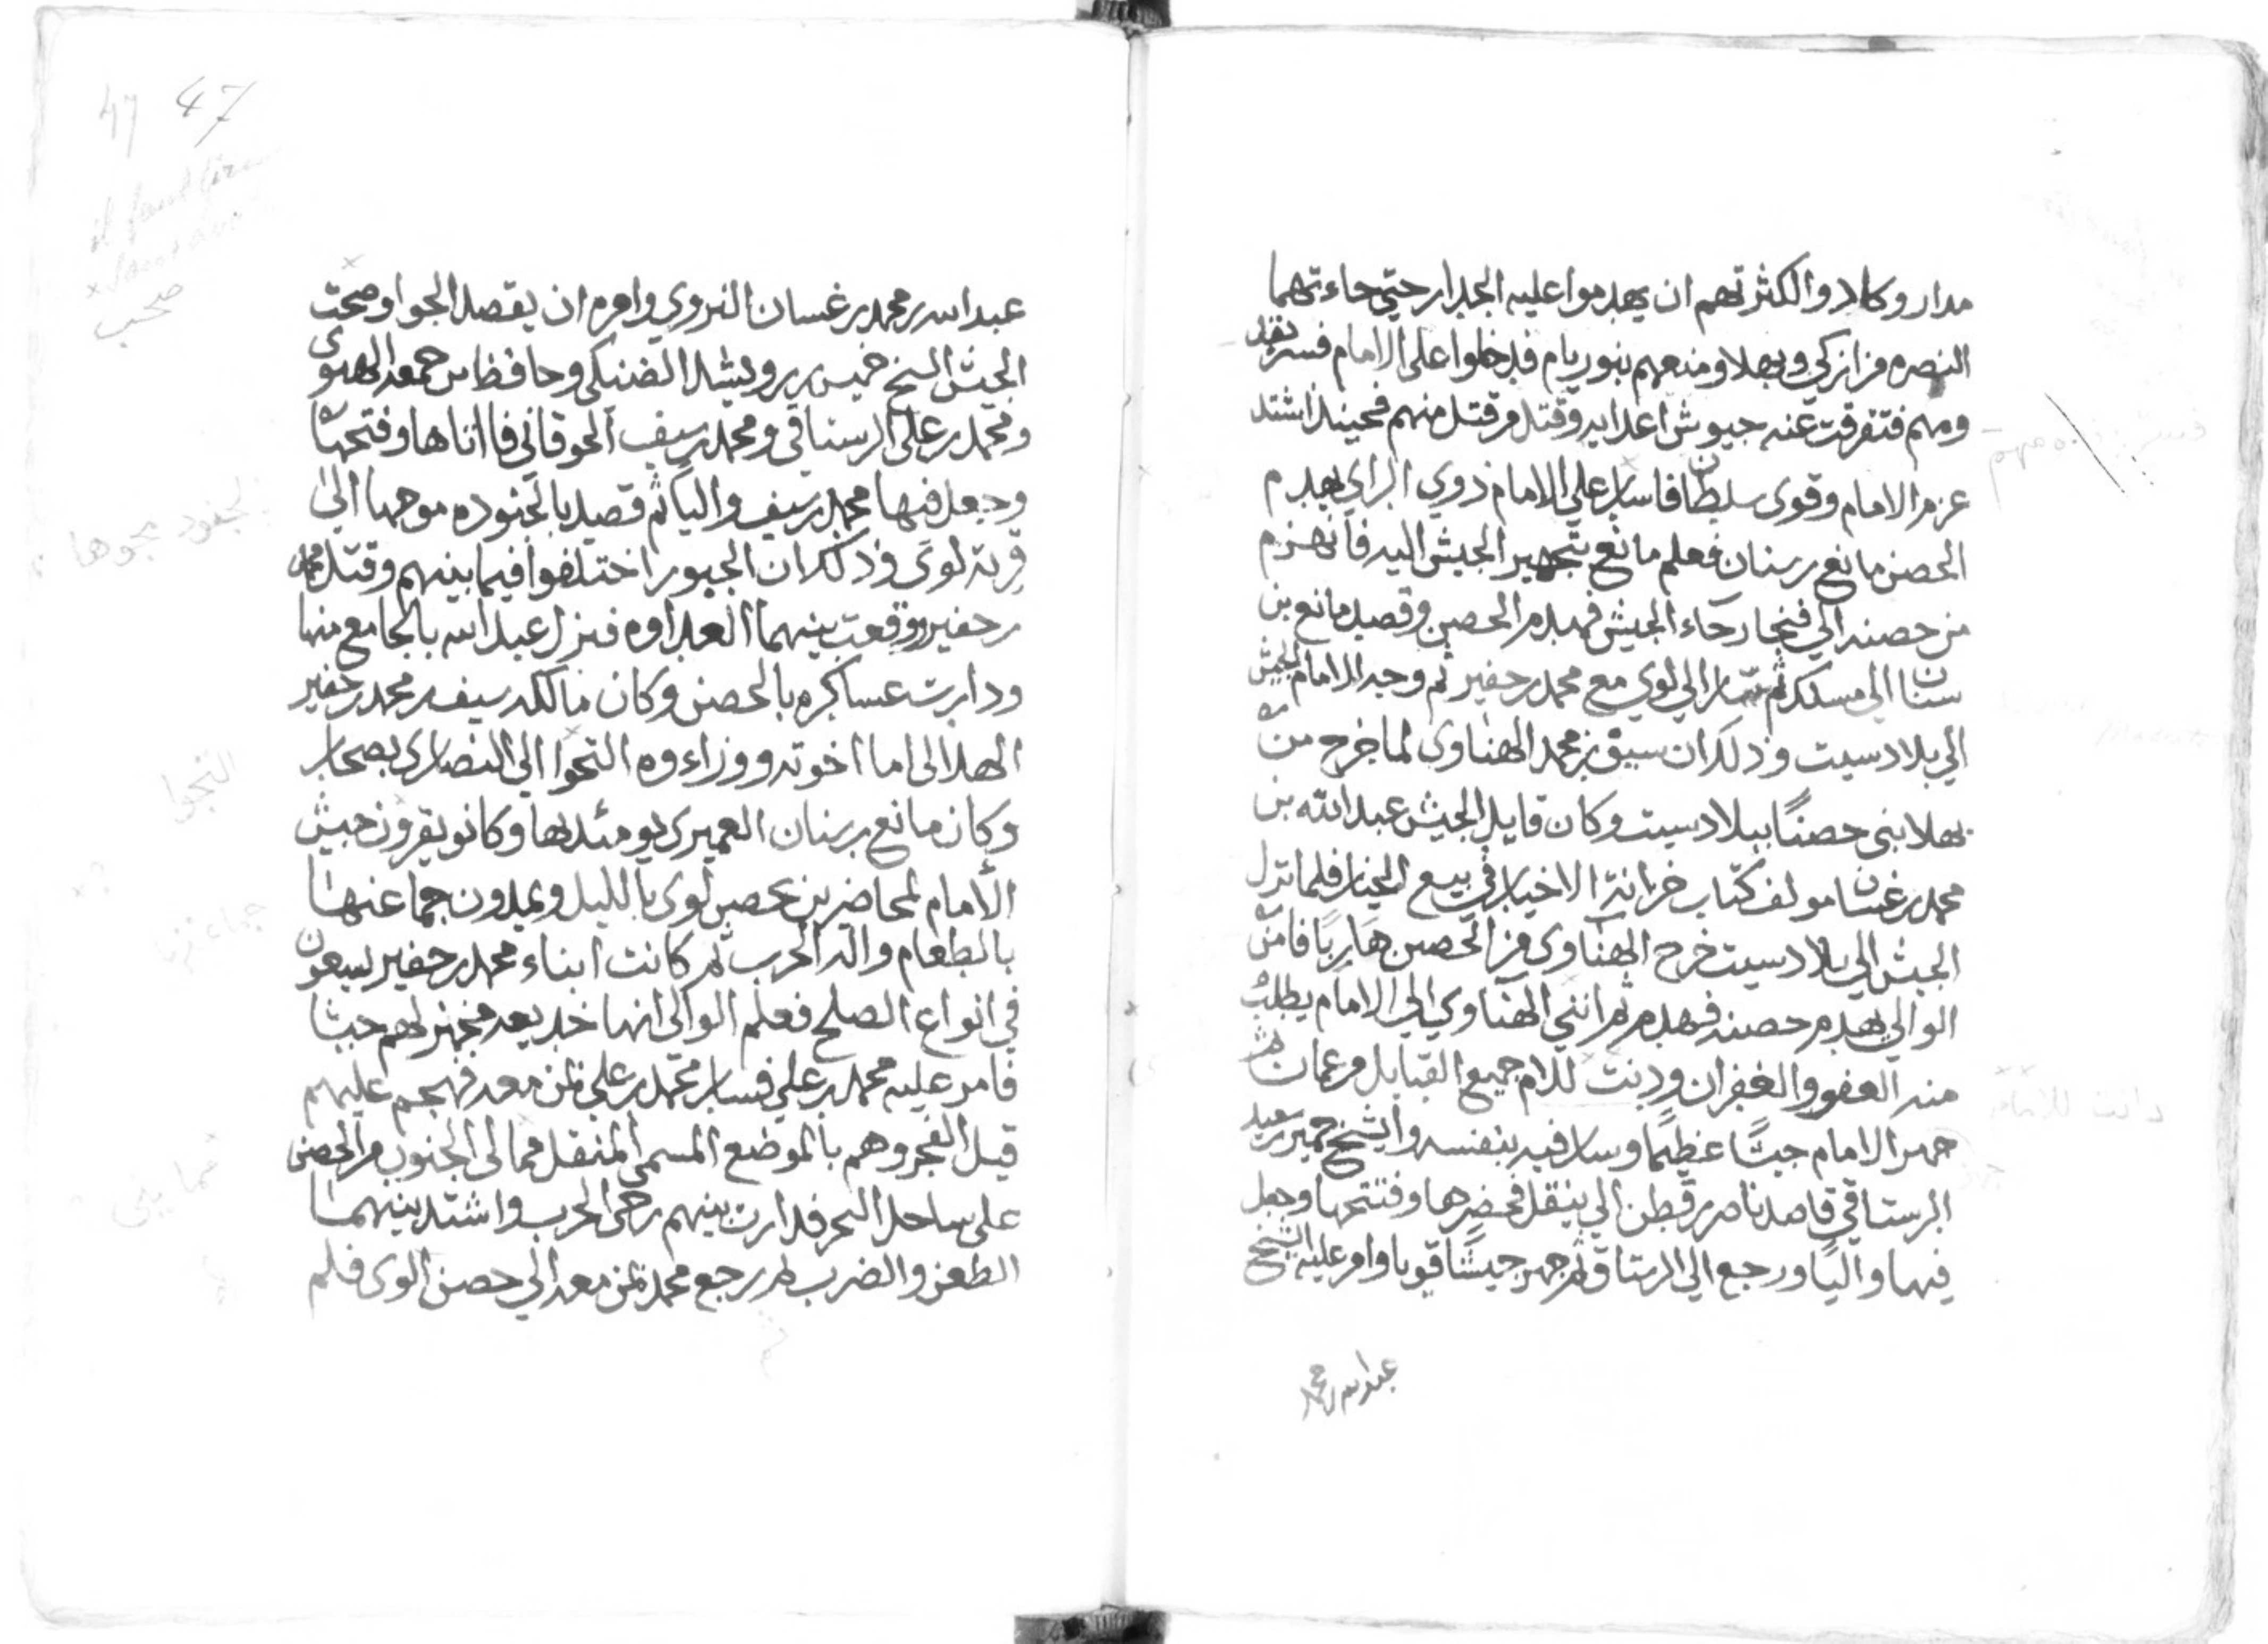 مدار وكادوا لكثرتهم ان يهدموا عليه الجدار حتي جاءتهما
النصره من ازكي وبهلا ومنعهم بنو ريام فدخلوا على الامام فسر بقد
ومهم فتفرقت عنه جيوش اعدايه وقتل من قتل منهم فحينئذ اشتد
عزم الامام وقوى سلطان فاسار علي الامام ذوي الراي بهدم
الحصن مانع بن سنان فعلم مانع بتجهير الجيش اليه فانهزم
من حصنه الي فنجا وجاء الجيش فهدم الحصن وقصد مانع بن
سنان الي مسكد ثم سار الي لوي مع محمد بن حفير ثم وجه الامام الجيش
الي بلاد سيت وذلك ان سيق بن محمد الهناوى لما خرج من
بهلا بنى حصنًا ببلاد سيت وكان قايد الجيش عبد الله بن
محمد بن غسان مولف كتاب خزانة الاخيار في بيع الخيار فلما نزل
الجيش الي بلاد سيت خرج الهناوى من الحصن هاربًا فامر
الوالي بهدم حصنه فهدم ثم انثني الهناوي الي الامام يطلب
منه العفو والغفران ودنت للام جميع القبايل من عمان ثم
جهز الامام جيشًا عظيمًا وسار فيه بنفسه والشيخ خميس بن سعيد
الرستاقي قاصد ناصر بن قطن الي ينقل فحضرها وفتتحها وجعل
فيها واليًا ورجع الي الرستاق ثم جهز جيشًا قويا وامر عليه الشيخ
عبد الله بن محمد
47 47
il faut lire
صحب
عبد الله بن محمد بن غسان النزوي وامره ان يقصد الجوا وصحبت
الجيش الشيخ خميس بن رويشد الضنكي وحافظ بن جمعه الهنوى
ومحمد بن علي الرستاقي ومحمد بن سيف الحوقاني فا اتاها وفتحها
وجعل فيها محمد بن سيف واليا ثم قصد بالجنوده موجها الى
قرية لوى وذلك ان الجبور اختلفوا فيما بينهم وقتل محمد
بن حفير ووقعت بينهما العداوه فنزل عبد الله بالجامع منها
ودارت عساكره بالحصن وكان مالكه سيف بن محمد بن حفير
الهلالى اما اخوته ووزراءوه التجوا الى النصارى بصحار
وكان مانع بن سنان العميرى يومئذ بها وكانو يقرون جيش
الامام لمحاضرين بحصن لوى بالليل ويمدون جماعنها
بالطعام واله الحرب ثم كانت ابناء محمد بن حفير يسعون
في انواع الصلح فعلم الوالى انها خديعه فجهز لهم جيشا
فامر عليه محمد بن علي فسار محمد بن علي بمن معه فهجم عليهم
قبل الفجر وهم بالموضع المسمى المنقل مما لى الجنوب من الحصن
على ساحل البحر فدارت بينهم رحى الحرب واشتد بينهما
الطعن والضرب ثم رجع محمد بمن معه الي حصن الوى فلم
التجوا